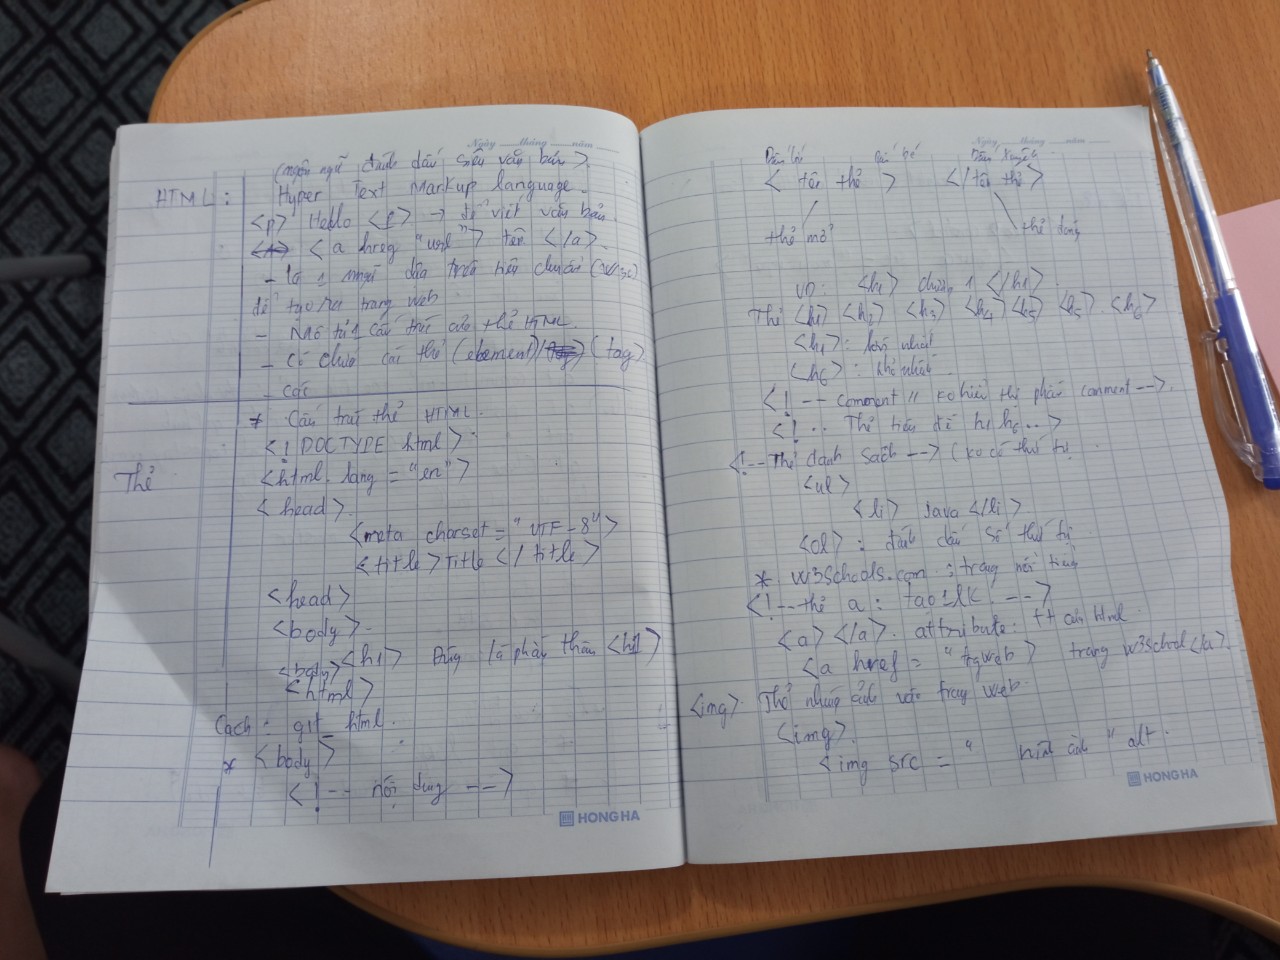 Ngày tháng năm
(ngôn ngữ đánh dấu siêu văn bản).
HTML: Hyper Text Markup language.
<p> Hello <p> → để viết văn bản
<a hreg "url"> tên </a>.
- là 1 ngữ dựa trên tiêu chuẩn (W3C)
để tạo ra trang web.
- Mô tả cấu trúc của thẻ HTML.
- Có chứa các thẻ (element) (tag)
- các
* Cấu trúc thẻ HTML.
<! DOCTYPE html>
Thẻ <html lang = "en">
<head>
<meta charset = "UTF-8">
<title> Title </title>
<head>
<body>
<h1> Đúng là phần thân <h1>
<body>
<html>
Cách: git html.
* <body>
<!-- nội dung -->
HONG HA
Ngày tháng năm
<tên thẻ> </tên thẻ>
thẻ mở thẻ đóng
VD: <h1> chương 1 </h1>.
Thẻ <h1> <h2> <h3> <h4> <h5> <h5>. <h6>
<h1>: lớn nhất
<h6>: nhỏ nhất.
<!-- comment // ko hiển thị phần comment -->.
<! .. Thẻ tiêu đề h1 h6 .. >
<!-- Thẻ danh sách --> (ko có thứ tự.
<ul>
<li> Java </li>.
<ol>: đánh dấu số thứ tự
* W3Schools.com: trang nổi tiếng
<!-- thẻ a: tạo 1 lk -->
<a> </a>. attribute: tt của html.
<a href = "tgweb> trang W3School </a>.
<img> Thẻ nhúng ảnh vào trang web.
<img>.
<img src = " hình ảnh " alt.
HONG HA